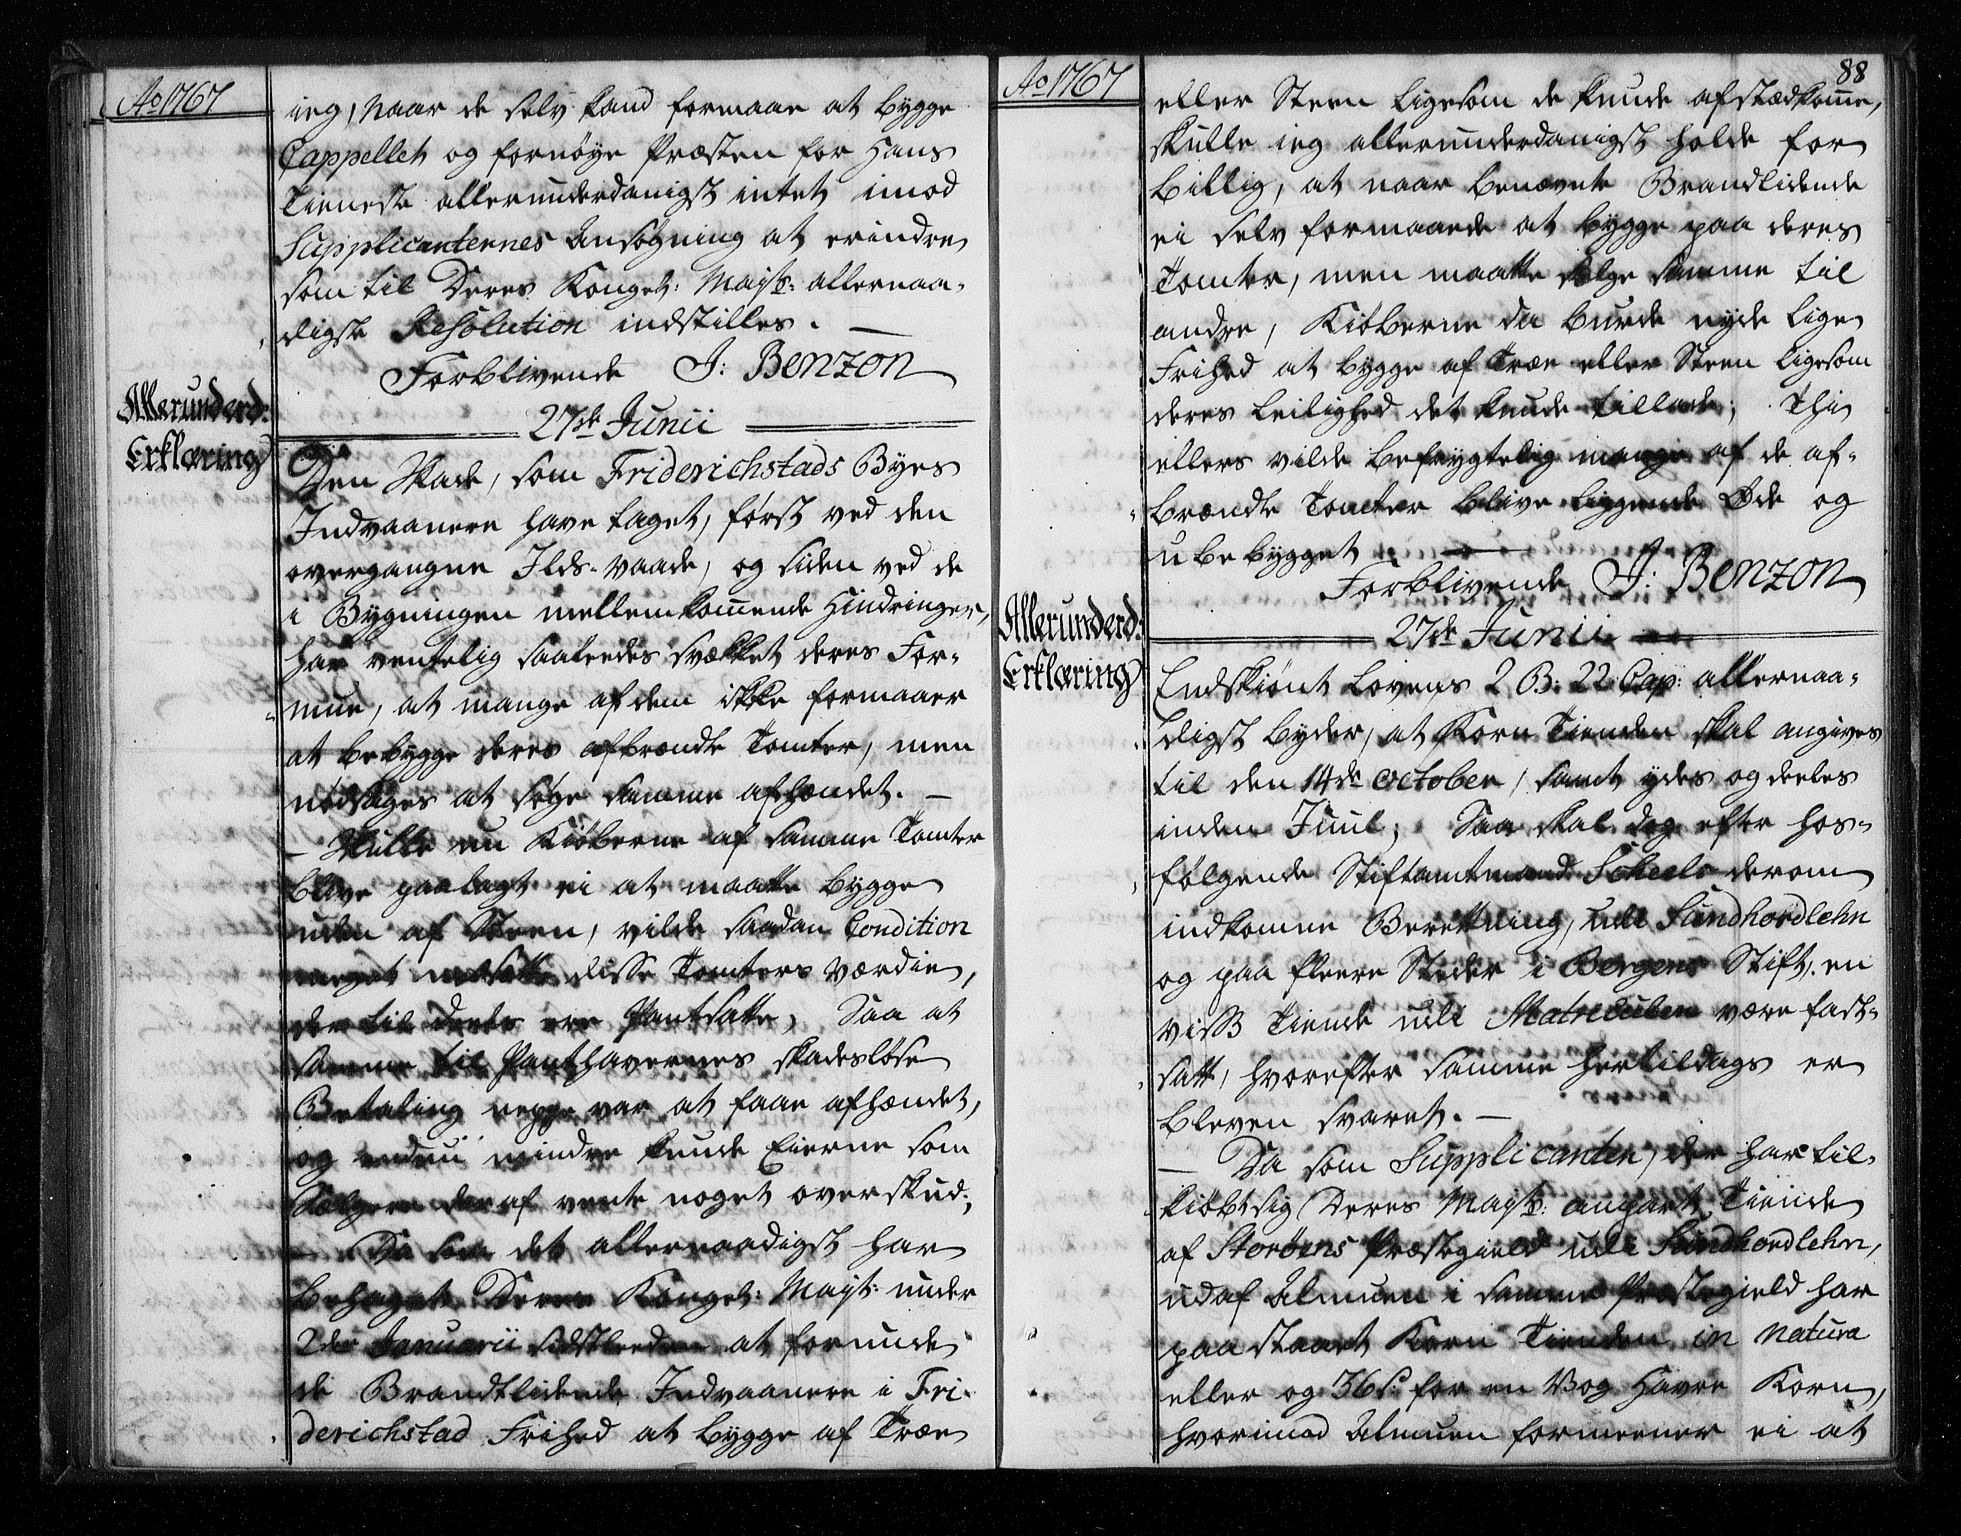 Ao 1767
ieg, naar de selv kand formaae at bygge
Cappellet og fornøye Præsten for hans
Tieneste allerunderdanigst intet imod
Supplicanternes Ansøgning at erindre
som til Deres Kongel: Mayst: allernaa-
digste Resolution indstilles. —
Forblivende J: Benzon
27de Junii
Allerunderd:
Erklæring
Den Skade, som Friderichstads Byes
Indvaanere have taget, først ved den
overgangne Ilds-vaade, og siden ved de
i Bygningen mellemkommende Hindringer,
har ventelig saaledes svækket deres For-
mue, at mange af dem ikke formaaer
at bebygge deres afbrændte Tomter, men
nødsages at søge samme afhændet. —
— Skulle nu Kiøberne af samme Tomter
blive paalagt ei at maatte bygge
uden af Steen, vilde saadan Condition
meget nedsætte disse Tomters Værdie,
der til deels ere Pantsatte, Saa at
samme til Panthavernes skadesløse
Betaling neppe var at faae afhændet,
og endnu mindre kunde Eierne som
Sælgere deraf vente noget overskud;
— Da som det allernaadigst har
behaget Deres Kongel: Mayst: under
2de Januarii sidstleeden at forunde
de Brandtlidende Indvaanere i Fri-
derichstad Frihed at bygge af Træe
Ao 1767
88
eller Steen ligesom de kunde afstædkomme,
skulle ieg allerunderdanigst holde for
billig, at naar benævnte Brandlidende
ei selv formaaede at bygge paa deres
Tomter, men maatte sælge samme til
andre, Kiøberne da burde nyde lige
Frihed at bygge af Træe eller Steen ligesom
deres Leilighed det kunde tillade; Thi
ellers vilde befrygtelig mange af de af-
brændte Tomter blive liggende Øde og
ubebygget. —
Forblivende J: Benzon
27de Junii
Allerunderd:
Erklæring
Endskiønt Lovens 2 B: 22 Cap: allernaa-
digst byder, at Korn Tienden skal angives
til den 14de October, samt ydes og deeles
inden Juul; Saa skal dog efter hos-
følgende Stiftamtmand Scheels derom
indkomne Beretning, udi Sundhordlehn
og paa fleere Steder i Bergens Stift, en
viss Tiende udi Matriculen være fast-
satt, hvorefter samme hertildags er
bleven svaret. —
— Da som Supplicanten, der har til-
kiøbt sig Deres Mayst: anpart Tiende
af Storøens Præstegield udi Sundhordlehn,
udaf Almuen i samme Præstegield har
paastaaet Korn Tienden in natura
eller og 36 s: for en Vog Havre Korn,
hvorimod Almuen formeener ei at